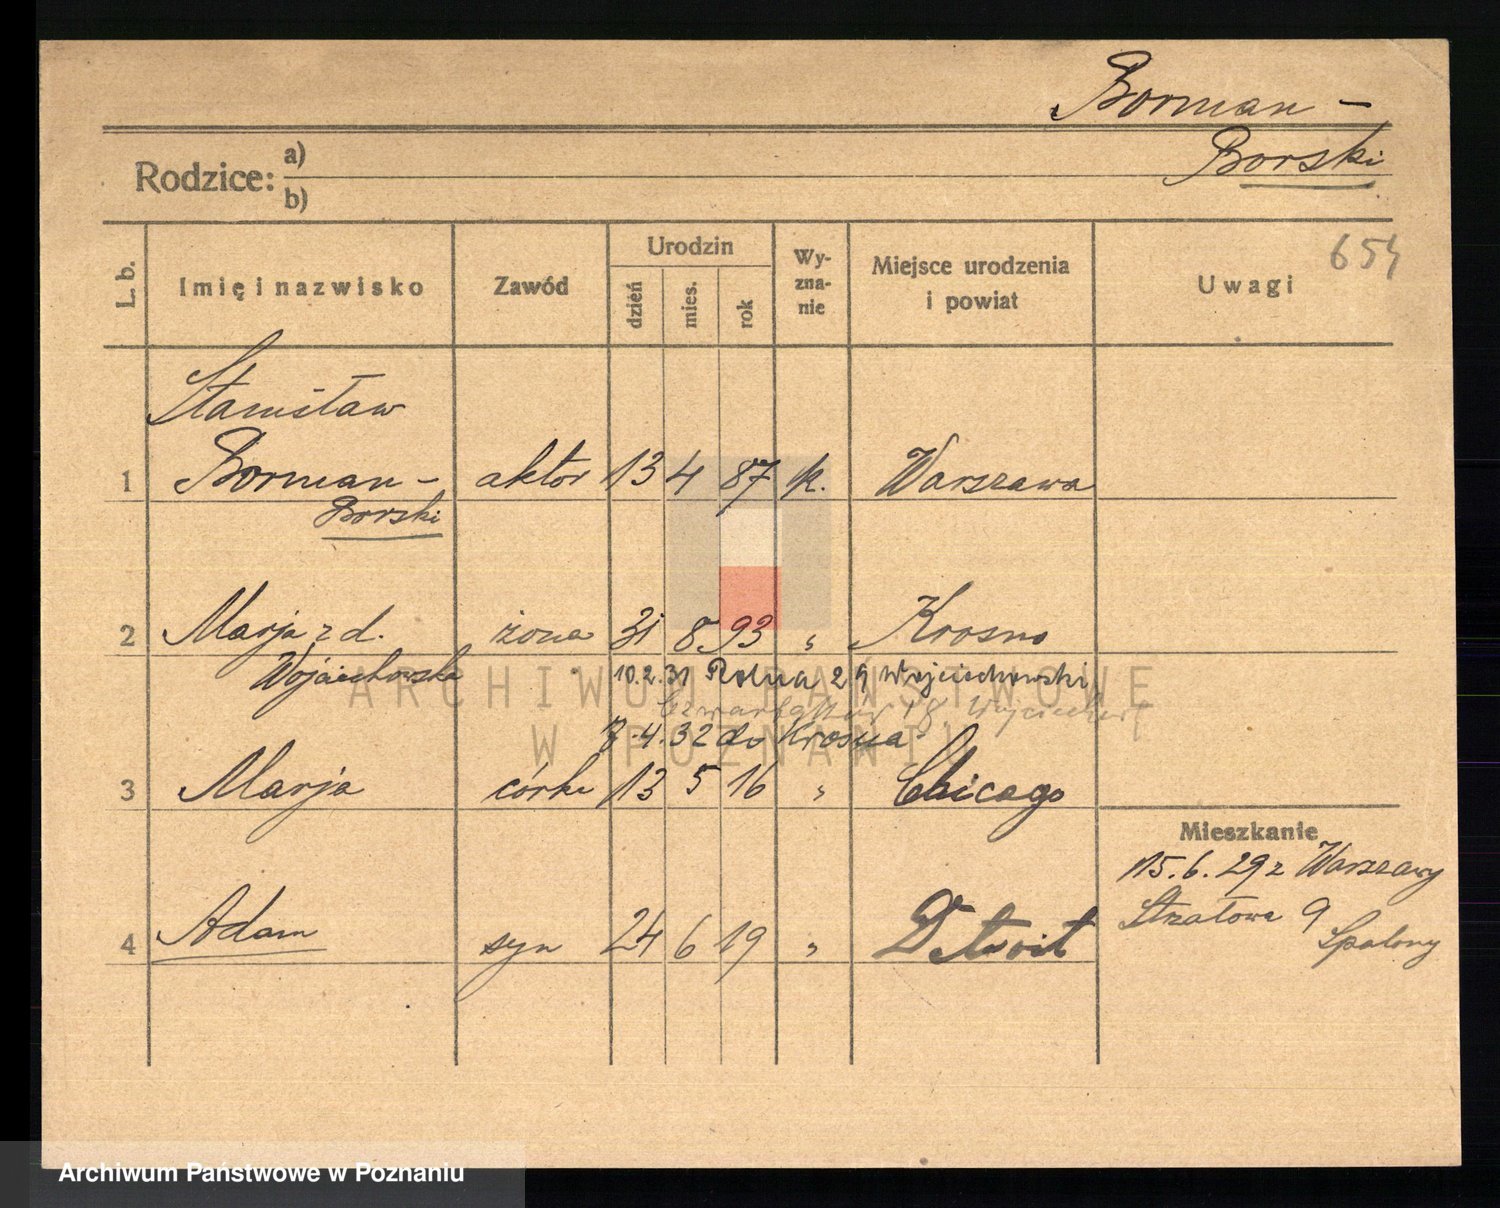 Borman -
Borski
Rodzice: a)
b)
654
L. b. Imię i nazwisko Zawód Urodzin dzień mies. rok Wy-zna-nie Miejsce urodzenia i powiat Uwagi
Stanisław
1 Borman - aktor 13 4 87 rk. Warszawa
Borski
2 Marja z d. żona 31 8 93 " Krosno
Wojciechowska 10.2.31 Rolna 29 Wojciechowski
8.4.32 do Krosna
3 Marja córka 13 5 16 " Chicago
Mieszkanie
15.6.29 z Warszawy
Strzałowa 9
Spalony
4 Adam syn 24 6 19 " Detroit
ARCHIWUM PAŃSTWOWE
W POZNANIU
Archiwum Państwowe w Poznaniu